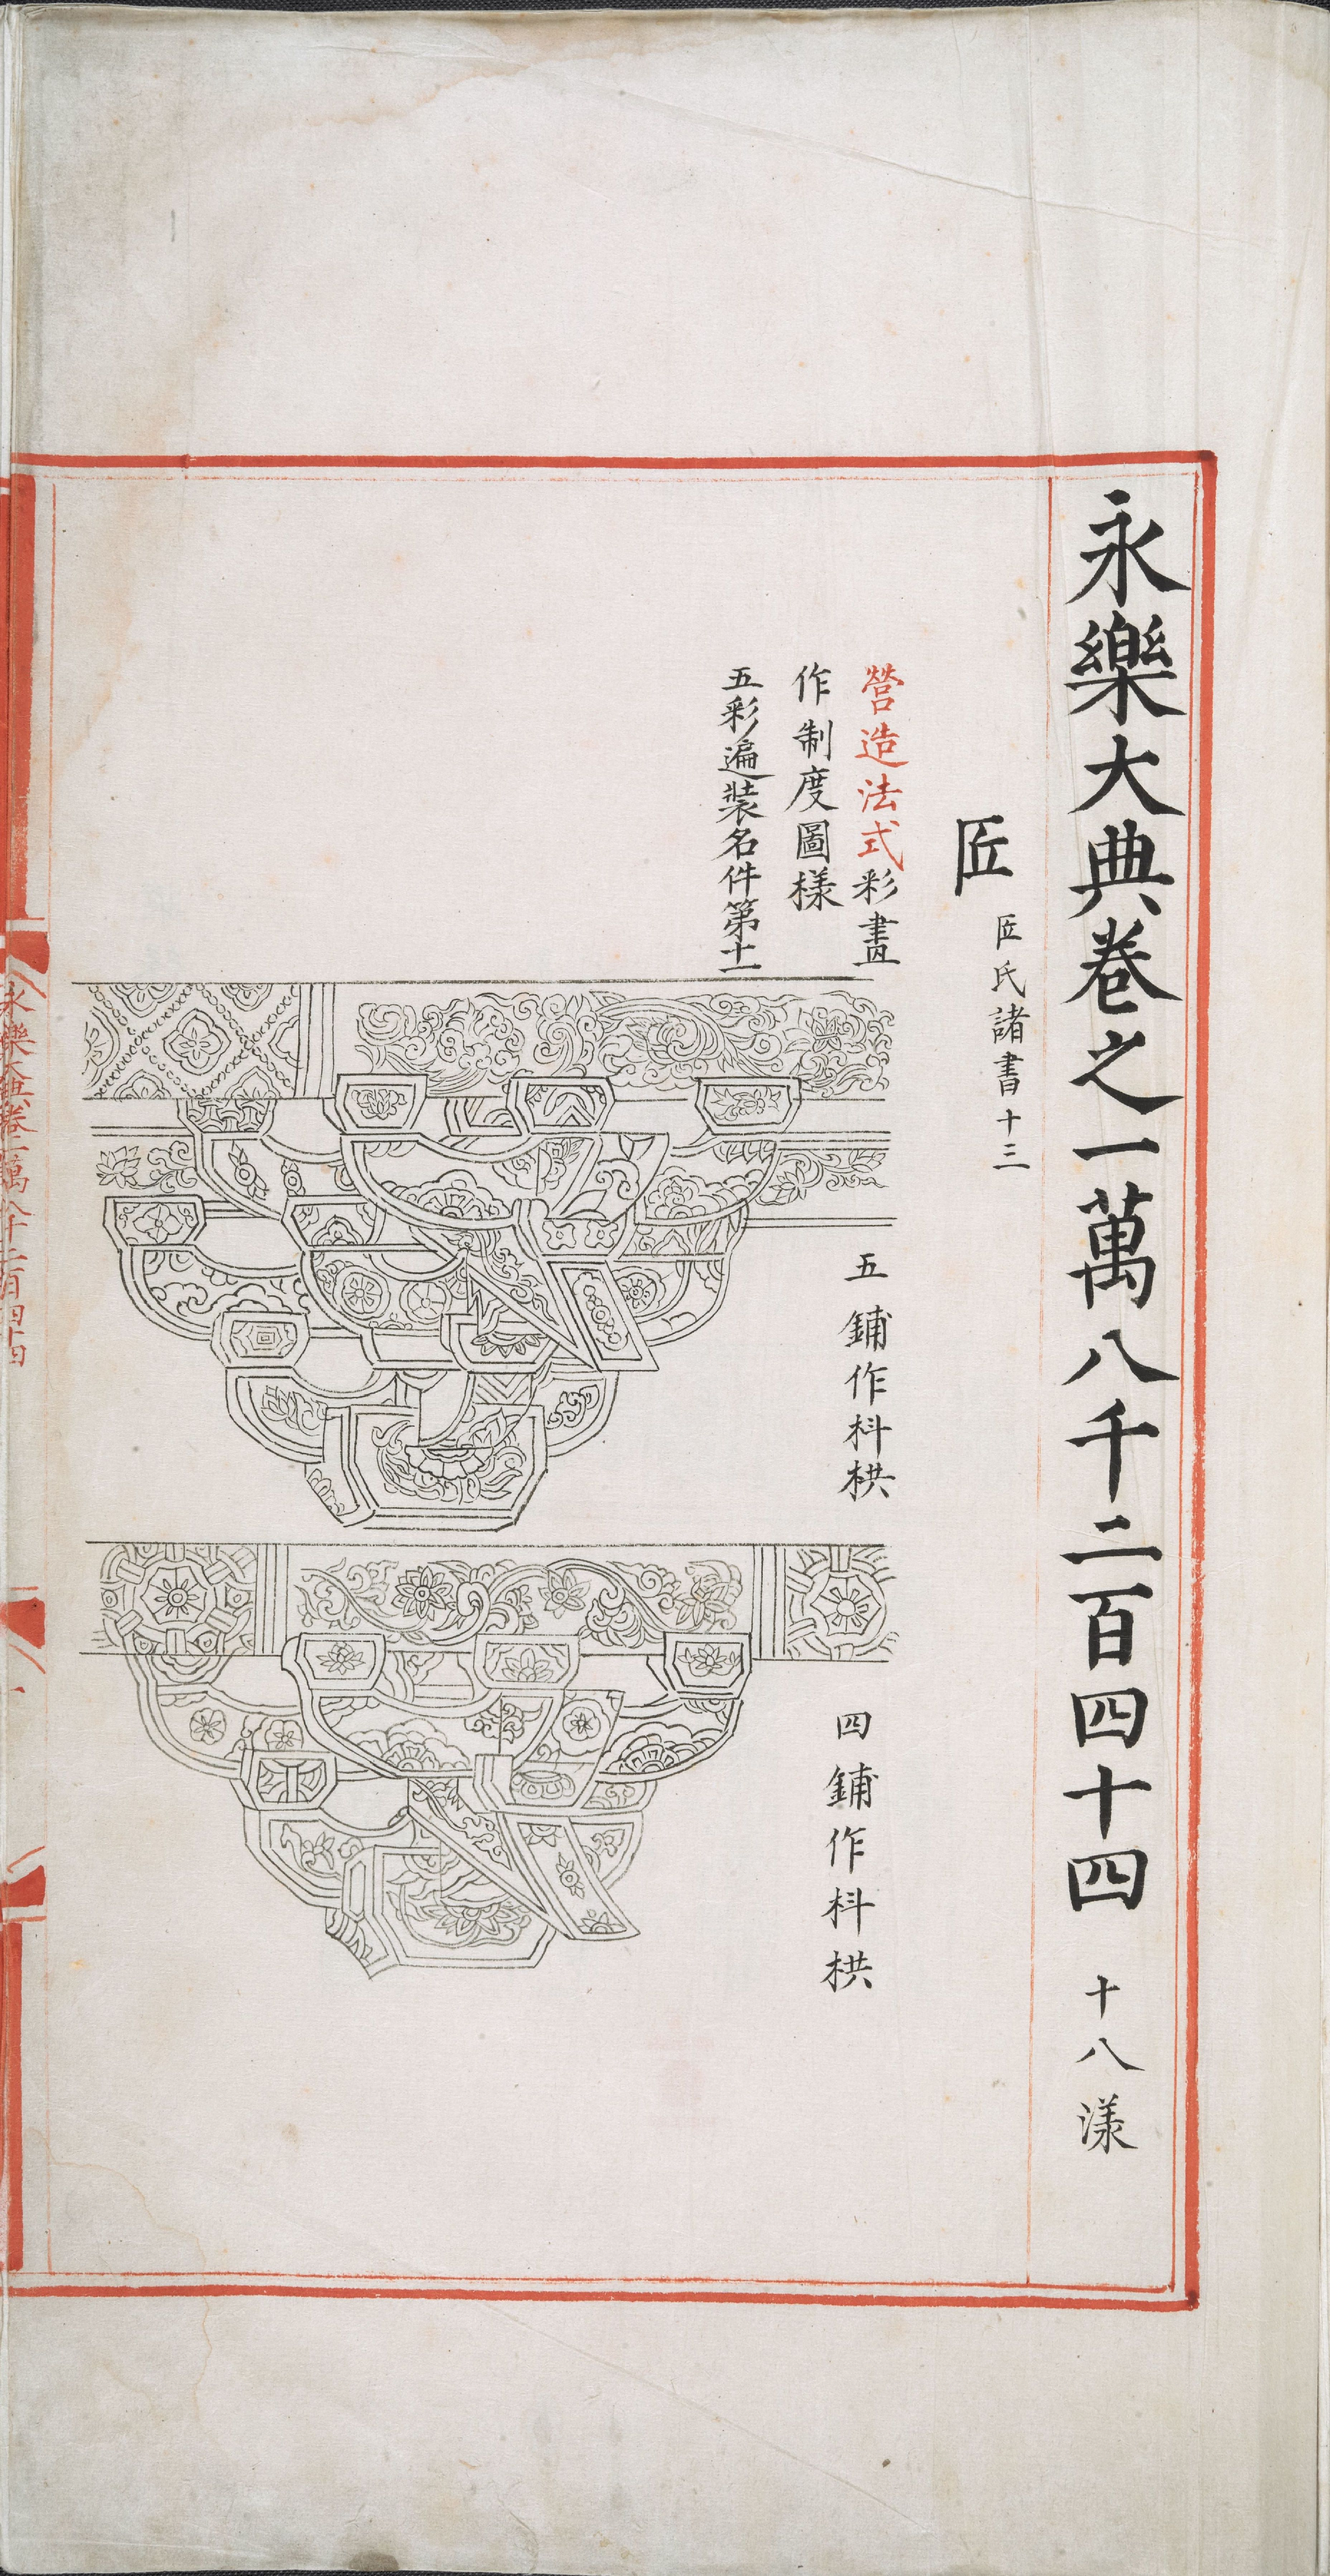 永樂大典卷之一萬八千二百四十四 十八漾
匠 匠氏諸書十三
營造法式彩畫
作制度圖樣
五彩遍裝名件第十一
五鋪作枓栱
四鋪作枓栱
永樂大典卷一萬八千二百四十四
一